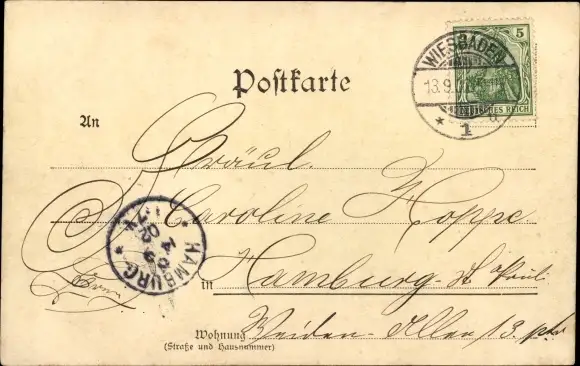 Postkarte
WIESBADEN
13.9.
* 1
5
DEUTSCHES REICH
An
Fräul.
Caroline Hoppe
in Hamburg-St. Pauli
HAMBURG
Wohnung
Weiden-Allee 13. ptr
(Straße und Hausnummer)